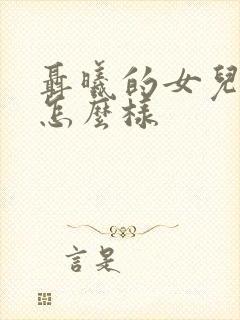 聶曦的女兒
怎麼樣
言是